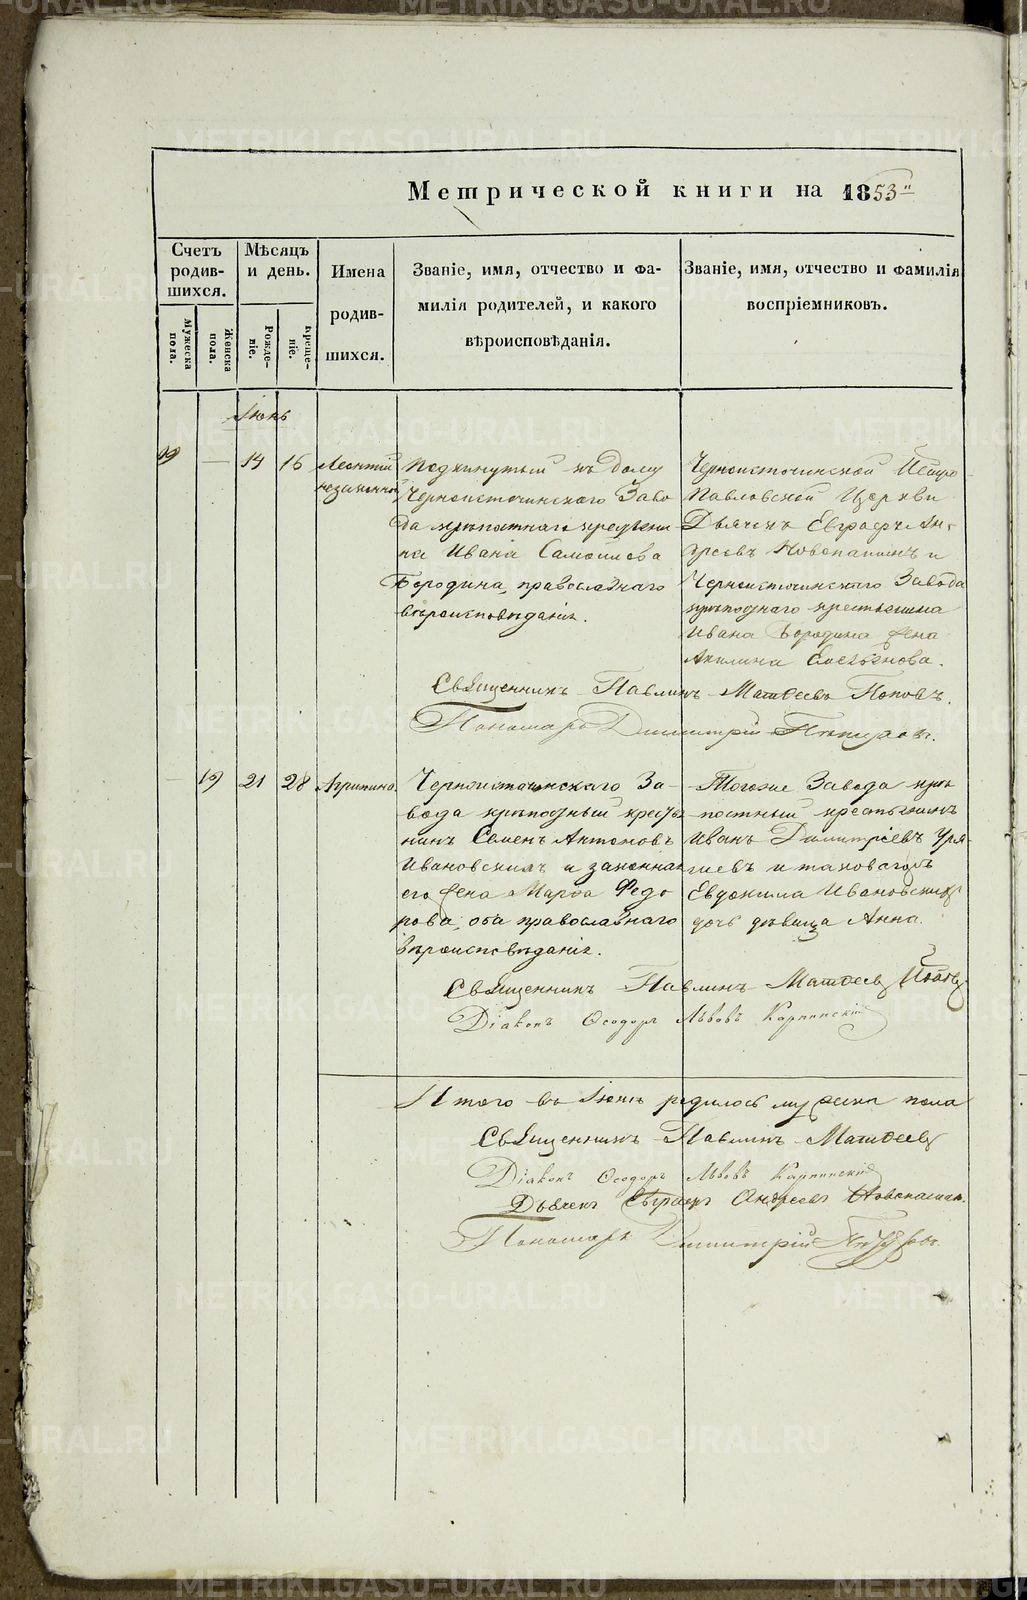 Метрической книги на 1853й
Счетъ родившихся.
Мѣсяцъ и день.
Имена родившихся.
Званіе, имя, отчество и фамилія родителей, и какого вѣроисповѣданія.
Званіе, имя, отчество и фамилія воспріемниковъ.
Мужеска пола.
Женска пола.
Рожденіе.
Крещеніе.
Іюнь
19 — 14 16
Леонтій
незаконной
Подкинутый къ дому
Черноисточинскаго Заво
да крѣпостнаго крестьяни
на Ивана Самойлова
Бородина, православнаго
вѣроисповѣданія.
Черноисточинской Петро
Павловской Церкви
Дьячекъ Евграфъ Ан-
дреевъ Новопашинъ и
Черноисточинскаго Завода
крѣпостнаго крестьянина
Ивана Бородина жена
Акилина
Священникъ Павлинъ Матѳеевъ Поповъ.
Пономарь Димитрій
— 19 21 28
Агрипина
Черноисточинскаго За-
вода крѣпостный кресть
нинъ Семенъ Антоновъ
Ивановскихъ и законная
его жена Марѳа Федо
рова, оба православнаго
вѣроисповѣданія.
Тогоже Завода крѣ
постный крестьянинъ
Иванъ Димитріевъ
и таковагожъ
Евдокима Ивановскихъ
дочь дѣвица Анна.
Священникъ Павлинъ Матѳеевъ Поповъ
Діаконъ Ѳеодоръ Львовъ Карпинскій
Итого въ Іюнѣ родилось мужеска пола
Священникъ Павлинъ Матѳеевъ
Діаконъ Ѳеодоръ Львовъ Карпинскій
Дьячекъ Евграфъ Андреевъ Новопашин.
Пономарь Димитрій
METRIKI.GASO-URAL.RU